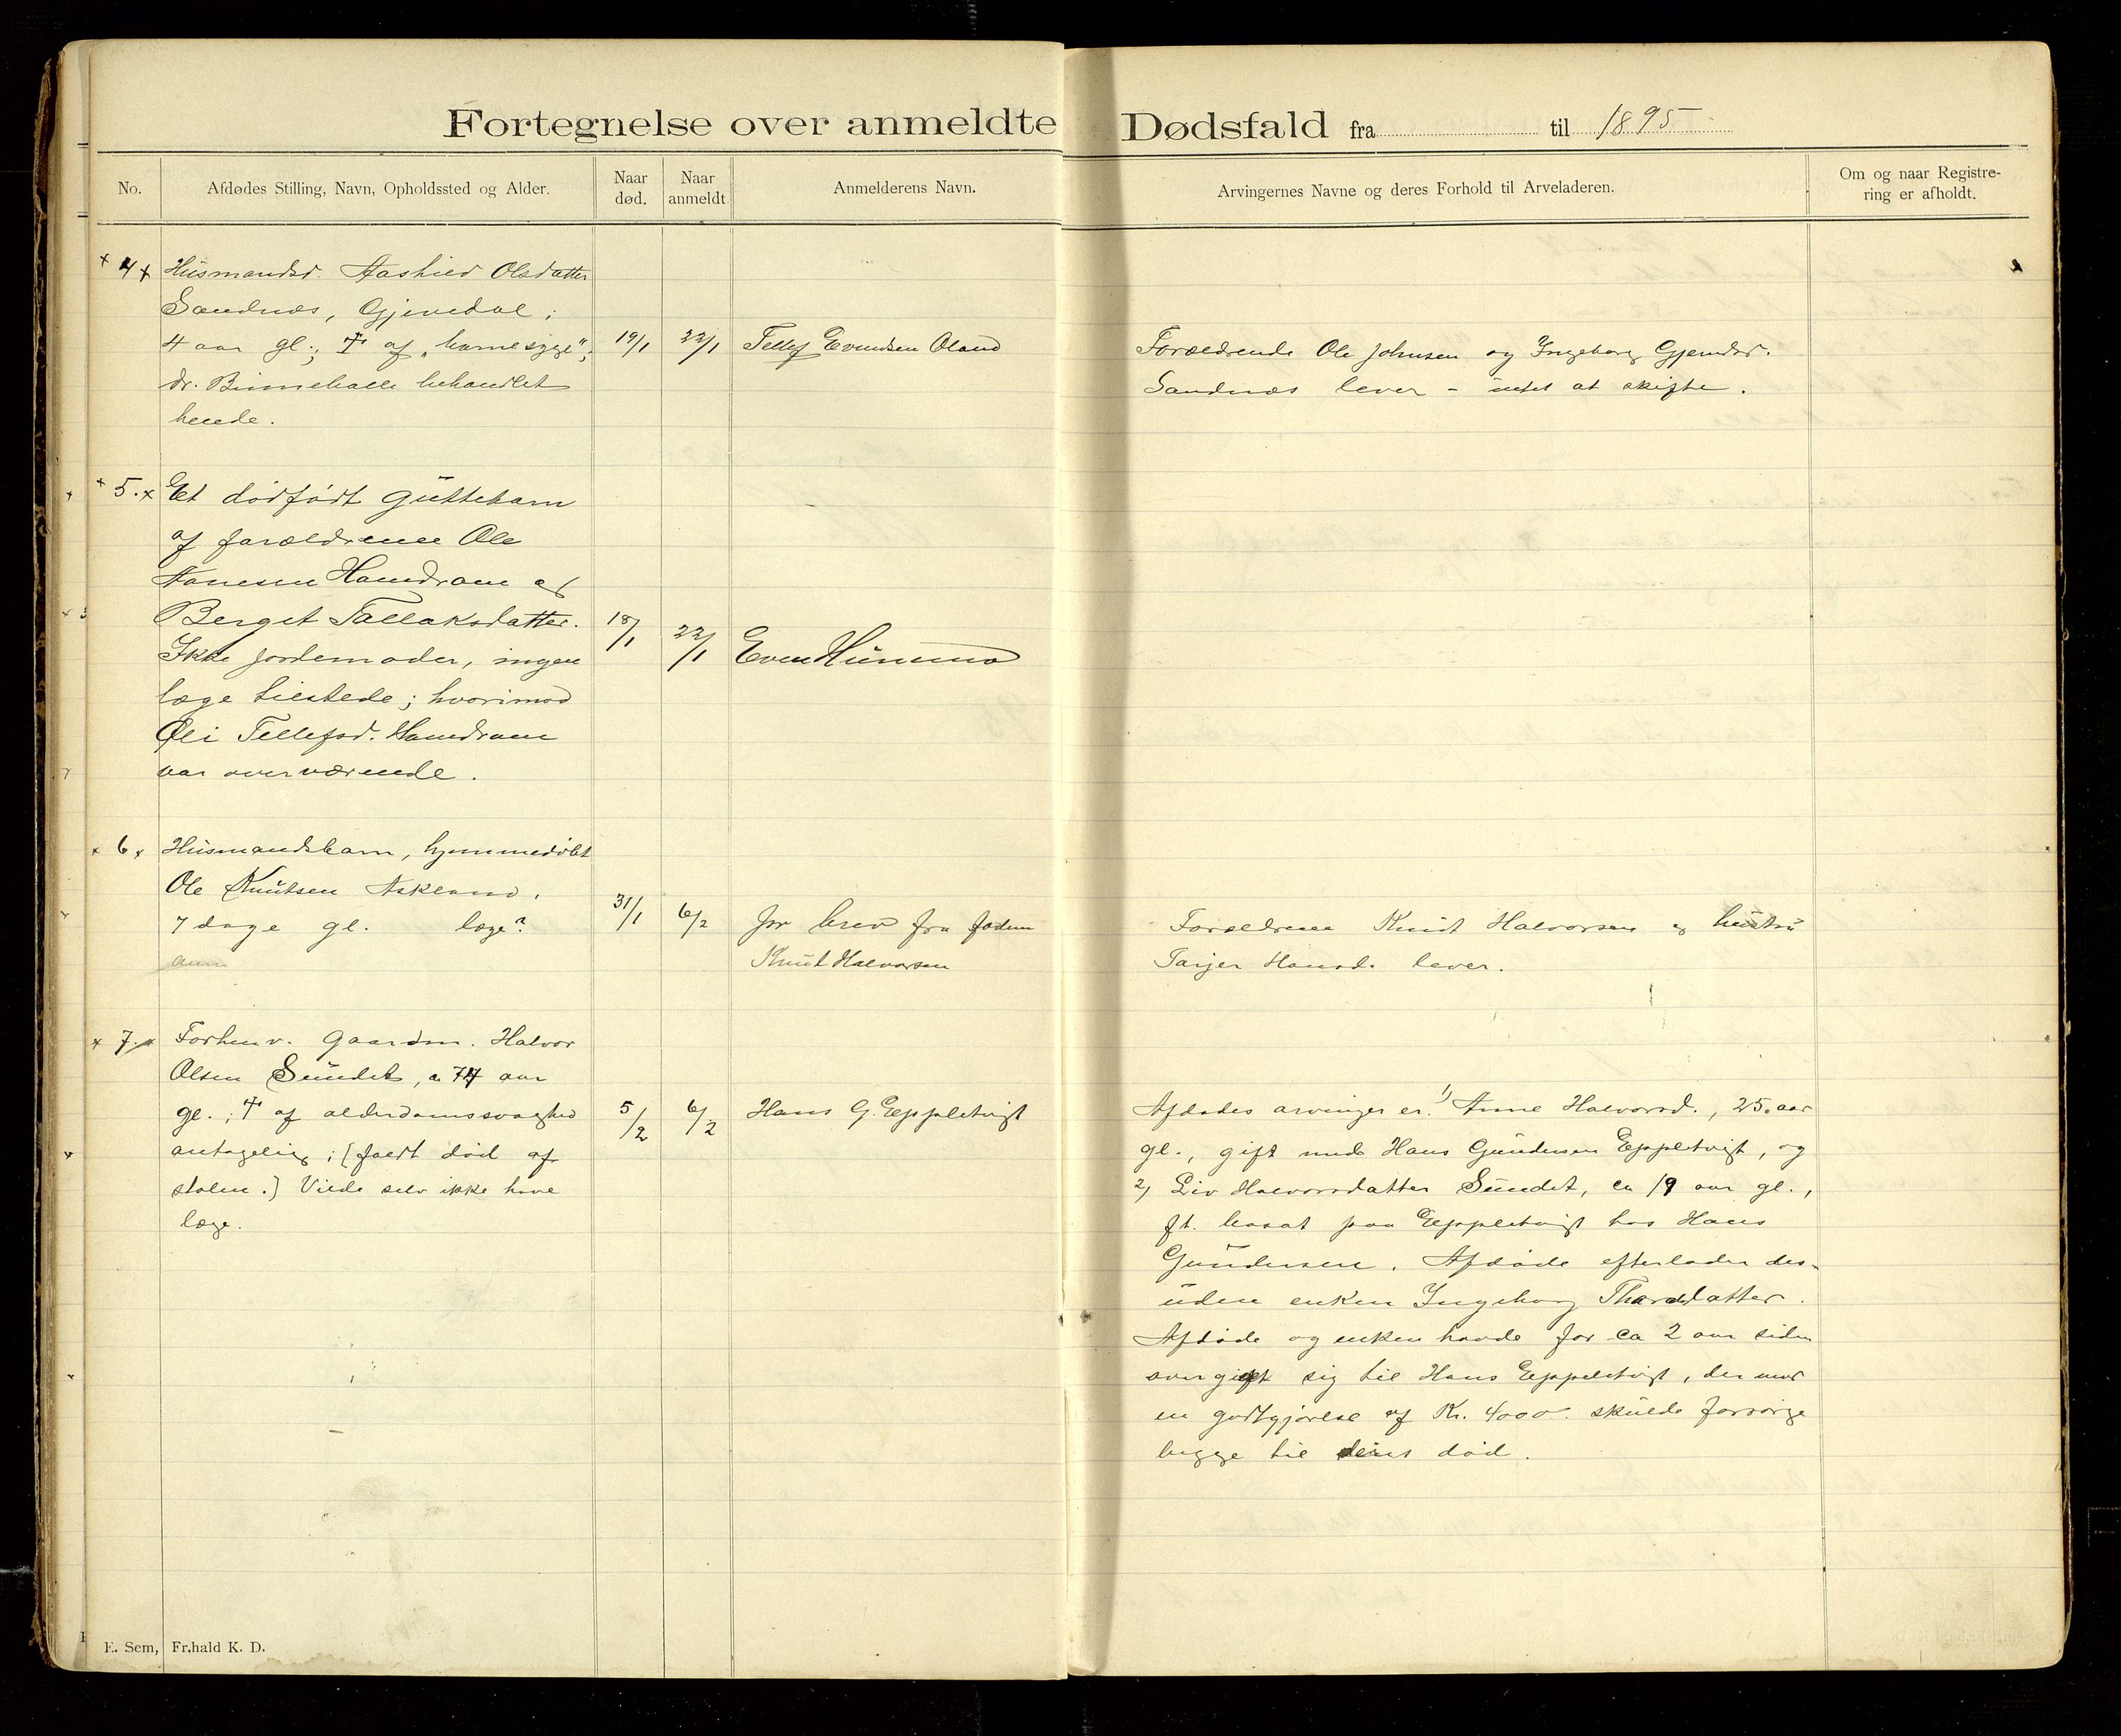 Fortegnelse over anmeldte Dødsfald fra til 1895
No.
Afdødes Stilling, Navn, Opholdssted og Alder.
Naar død.
Naar anmeldt.
Anmelderens Navn.
Arvingernes Navne og deres Forhold til Arveladeren.
Om og naar Registre-
ring er afholdt.
× 4 × Husmandsd. Aashild Olsdatter
Sandnæs, Gjevedal;
4 aar gl.; † af „barnesyge";
dr. behandlet
hende.
19/1 22/1 Tellef Evendsen Øland
Forældrende Ole Johnsen og Ingeborg Gjerulfsd.
Sandnæs lever – intet at skifte.
× 5. × Et dødfødt guttebarn
af forældrene Ole
Aanesen Hamdram og
Berget Tallaksdatter.
Ikke jordemoder, ingen
læge tilstede; hvorimod
Øli Tellefsd. Hamdram
var overværende.
18/1 22/1 Even
× 6 × Husmandsbarn, hjemmedøbt
Ole Knutsen Askland,
7 dage gl. læge?
31/1 6/2 pr brev fra faderen
Knut Halvorsen
Forældrene Knut Halvorsen og hustru
Tarjer Hansd. lever.
× 7. × Forhenv. gaardm. Halvor
Olsen Sundet, 77 aar
gl.; † af alderdomssvaghed
antagelig; (faldt død af
stolen.) Vilde selv ikke have
læge.
5/2 6/2 Hans G. Eppletvigt
Afdødes arvinger er: 1) Anne Halvorsd., 25 aar
gl., gift med Hans Gundersen Eppletvigt, og
2) Liv Halvorsdatter Sundet, ca 19 aar gl.,
ft. bosat paa Eppletvigt hos Hans
Gundersen. Afdøde efterlader des-
uden enken Ingeborg Tharaldsdatter.
Afdøde og enken havde for ca 2 aar siden
overgivet sig til Hans Eppeltvigt, der mod
en godtgjørelse af Kr. 4000 skulde forsørge
begge til deres død.
E. Sem, Fr.hald K. D.